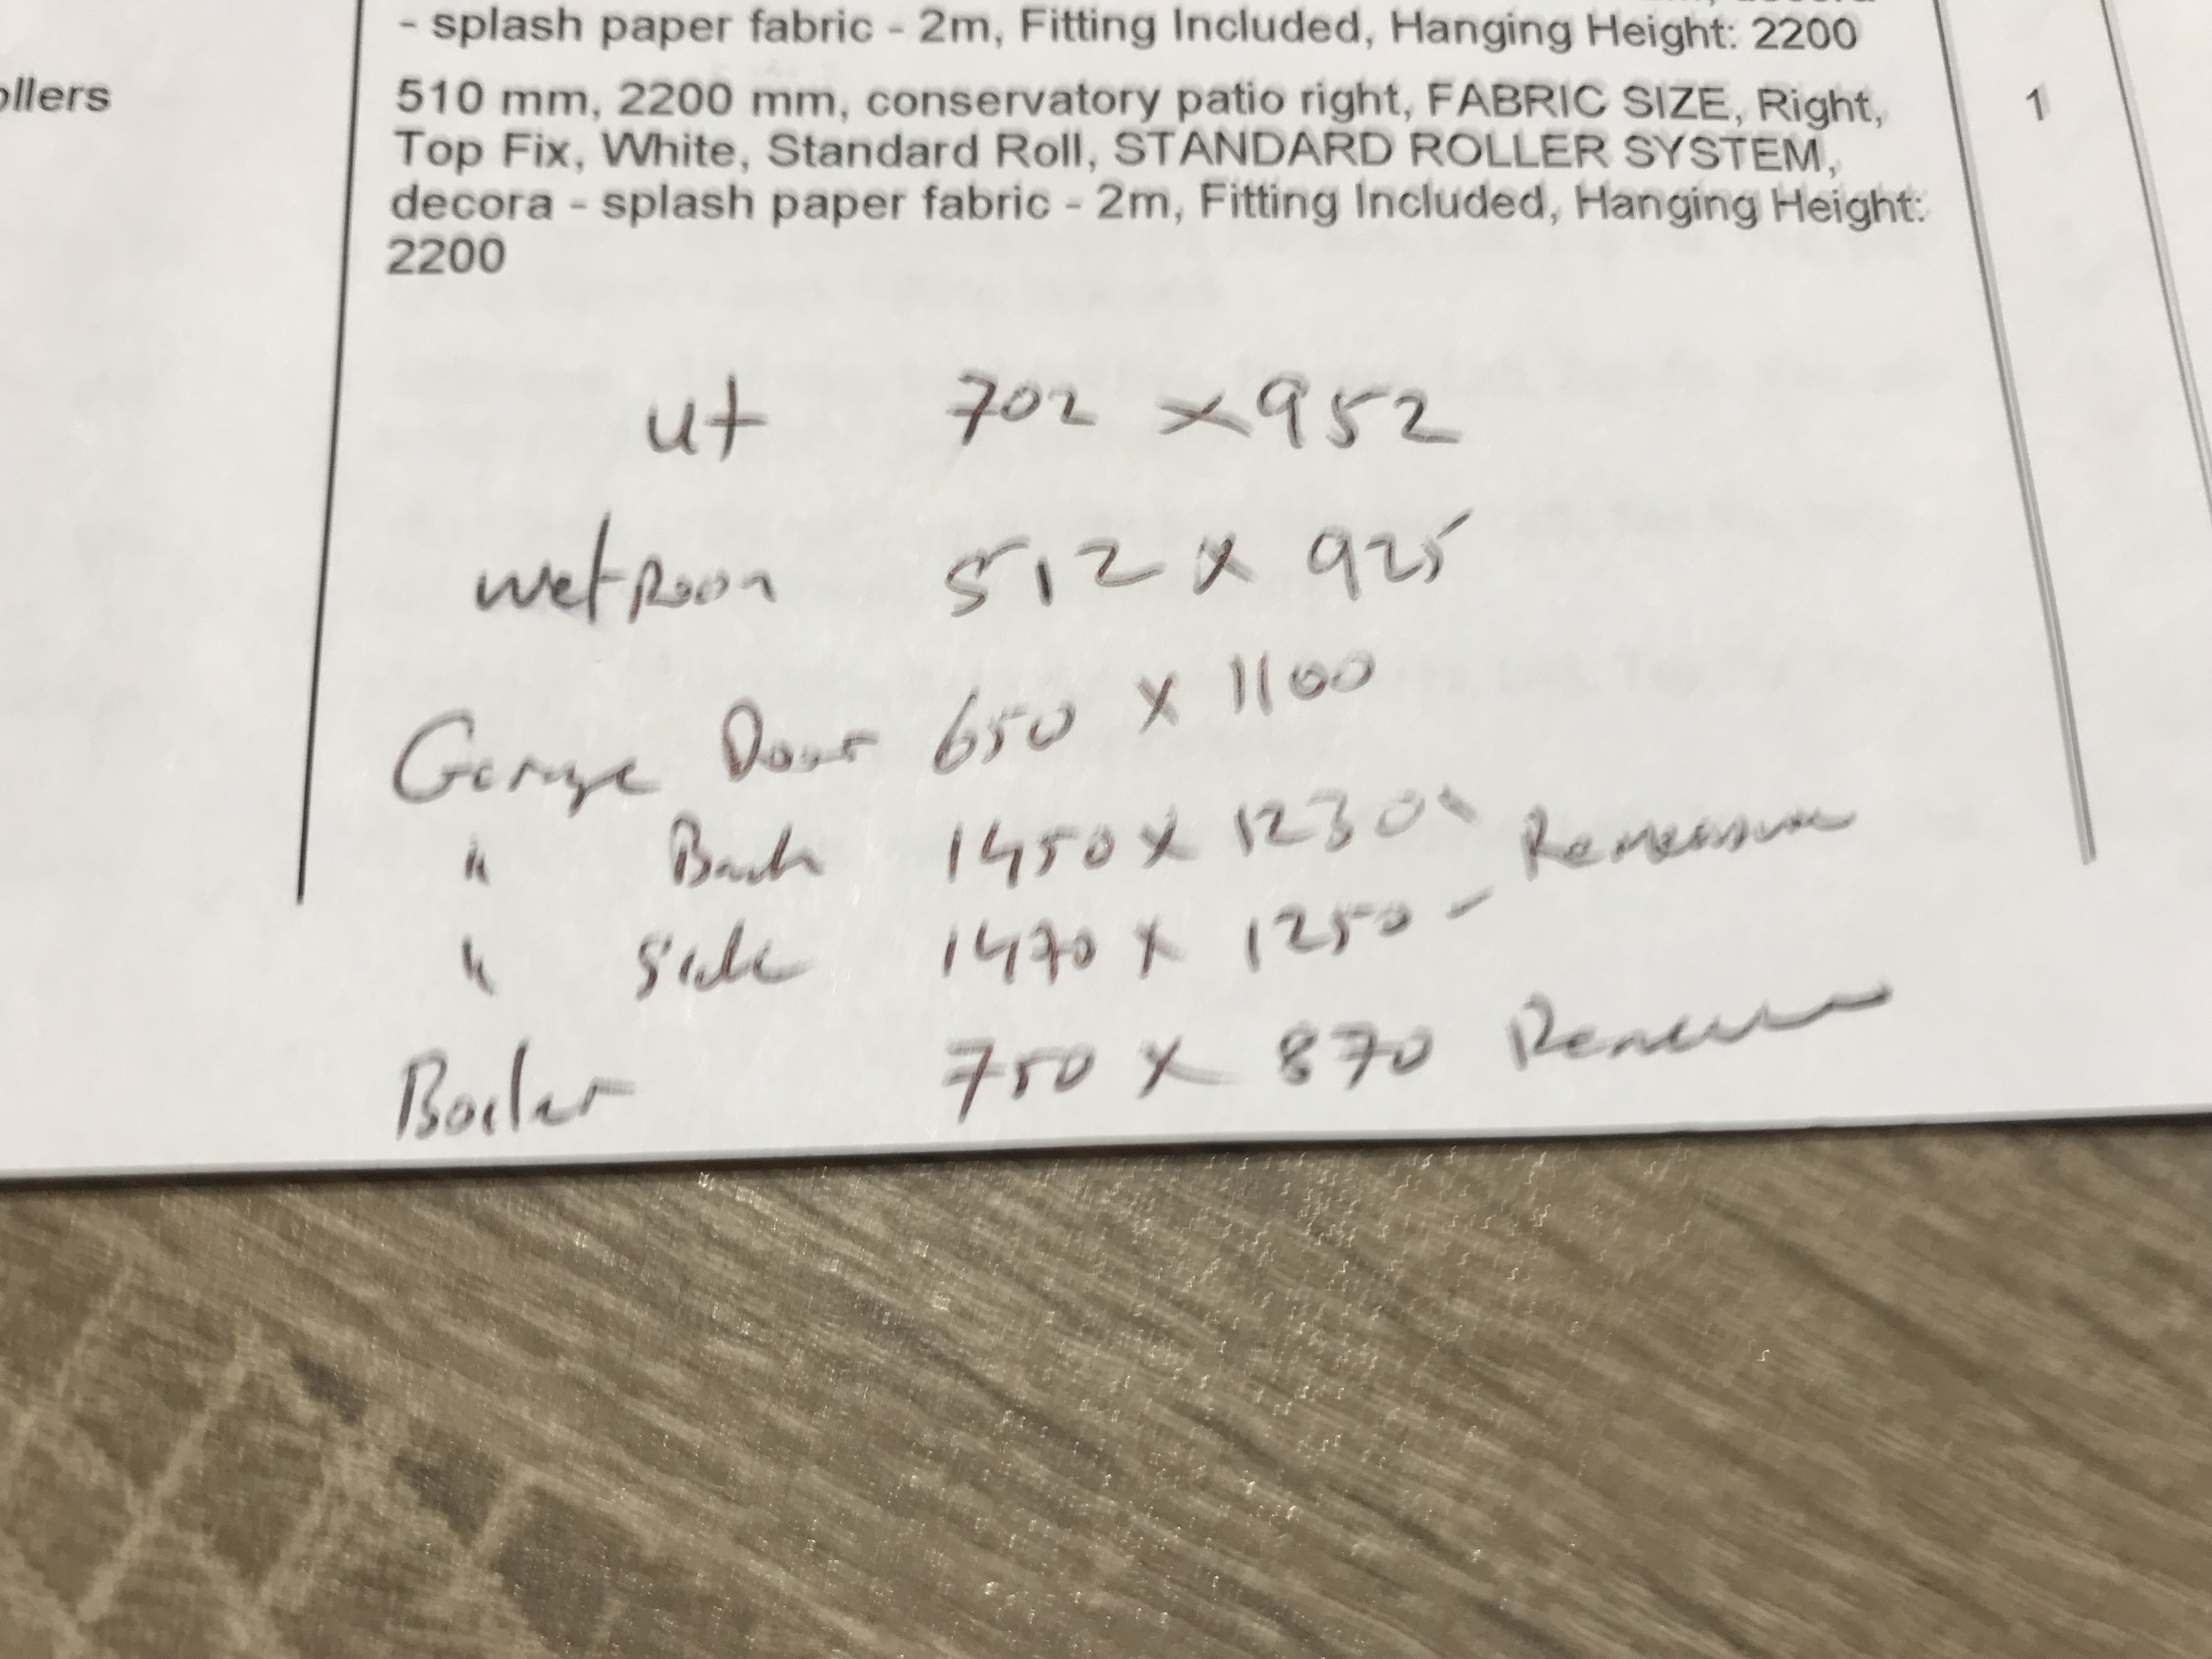 - splash paper fabric - 2m, Fitting Included, Hanging Height: 2200
ollers
510 mm, 2200 mm, conservatory patio right, FABRIC SIZE, Right,
1
Top Fix, White, Standard Roll, STANDARD ROLLER SYSTEM,
decora - splash paper fabric - 2m, Fitting Included, Hanging Height:
2200
ut 702 x 952
wet Room 512 x 925
Garage Door 650 x 1100
" Back 1450 x 1230 Remeasure
" Side 1470 x 1250 -
Boiler 750 x 870 Remeasure